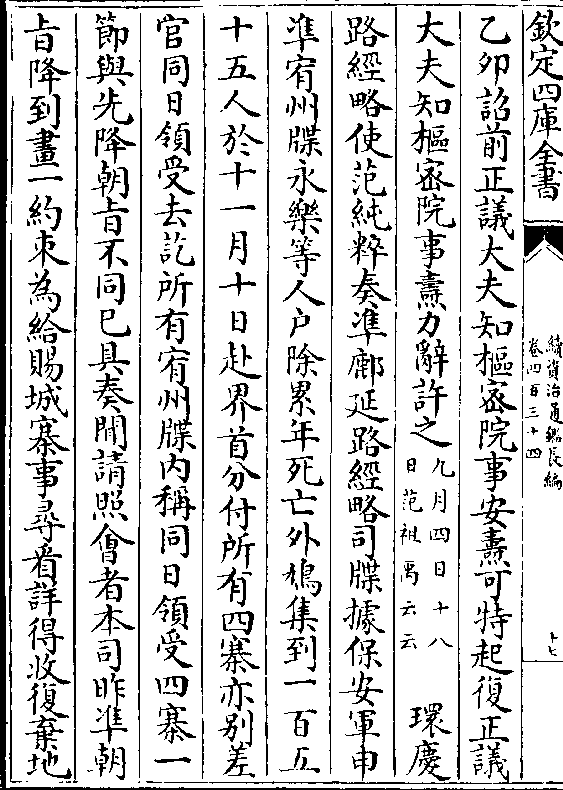 欽定四庫全書
續資治通鑑長編
卷四百三十四
十七
乙卯詔前正議大夫知樞密院事安燾可特起復正議
大夫知樞密院事燾力辭許之
九月四日十八
日范祖禹云云
環慶
路經略使范純粹奏凖鄜延路經略司牒據保安軍申
凖宥州牒永樂等人户除累年死亡外鳩集到一百五
十五人於十一月十日赴界首分付所有四寨亦别差
官同日領受去訖所有宥州牒内稱同日領受四寨一
節與先降朝旨不同已具奏聞請照會者本司昨凖朝
旨降到畫一約束為給賜城寨事尋看詳得收復棄地